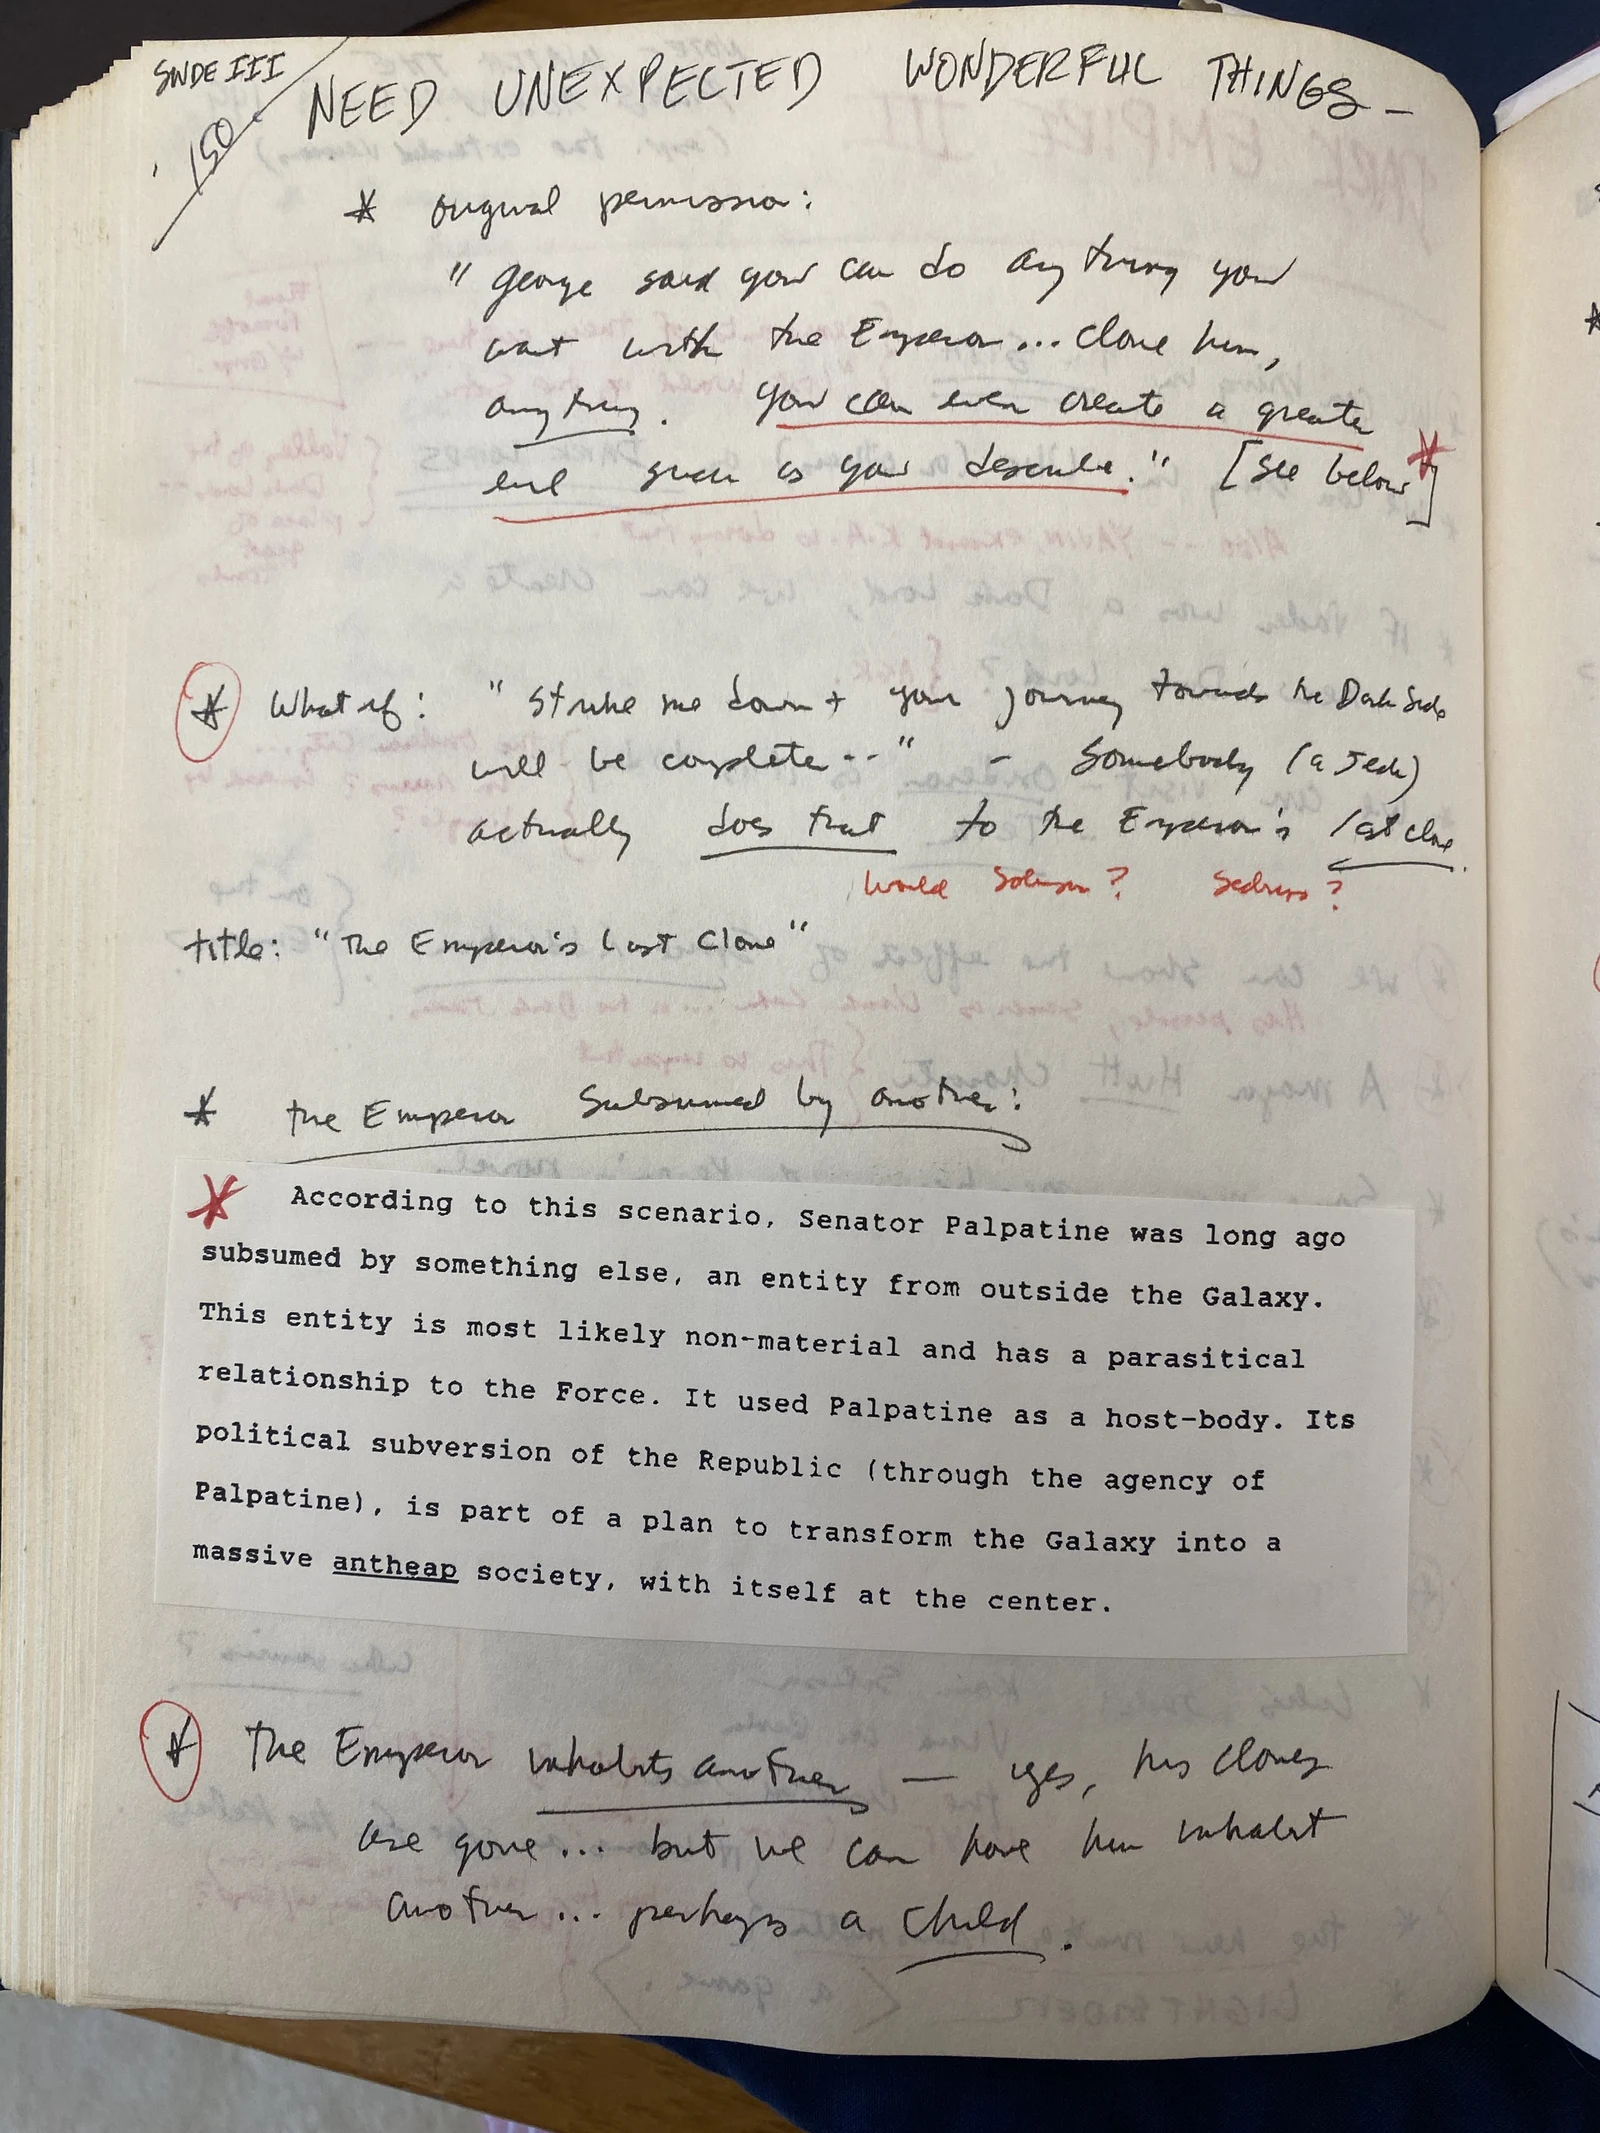 SWDE III
150
NEED UNEXPECTED WONDERFUL THINGS —
* original permission:
"George said you can do anything you
want with the Emperor... clone him,
anything. You can even create a greater
evil such as you describe." [see below *]
* What if: "Strike me down + your journey towards the Dark Side
will be complete --" - Somebody (a Jedi)
actually does that to the Emperor's last clone.
Would Solusar? Sedriss?
title: "The Emperor's Last Clone"
* the Emperor subsumed by another:
* According to this scenario, Senator Palpatine was long ago
subsumed by something else, an entity from outside the Galaxy.
This entity is most likely non-material and has a parasitical
relationship to the Force. It used Palpatine as a host-body. Its
political subversion of the Republic (through the agency of
Palpatine), is part of a plan to transform the Galaxy into a
massive antheap society, with itself at the center.
* The Emperor inhabits another — yes, his clones
are gone... but we can have him inhabit
another... perhaps a child.